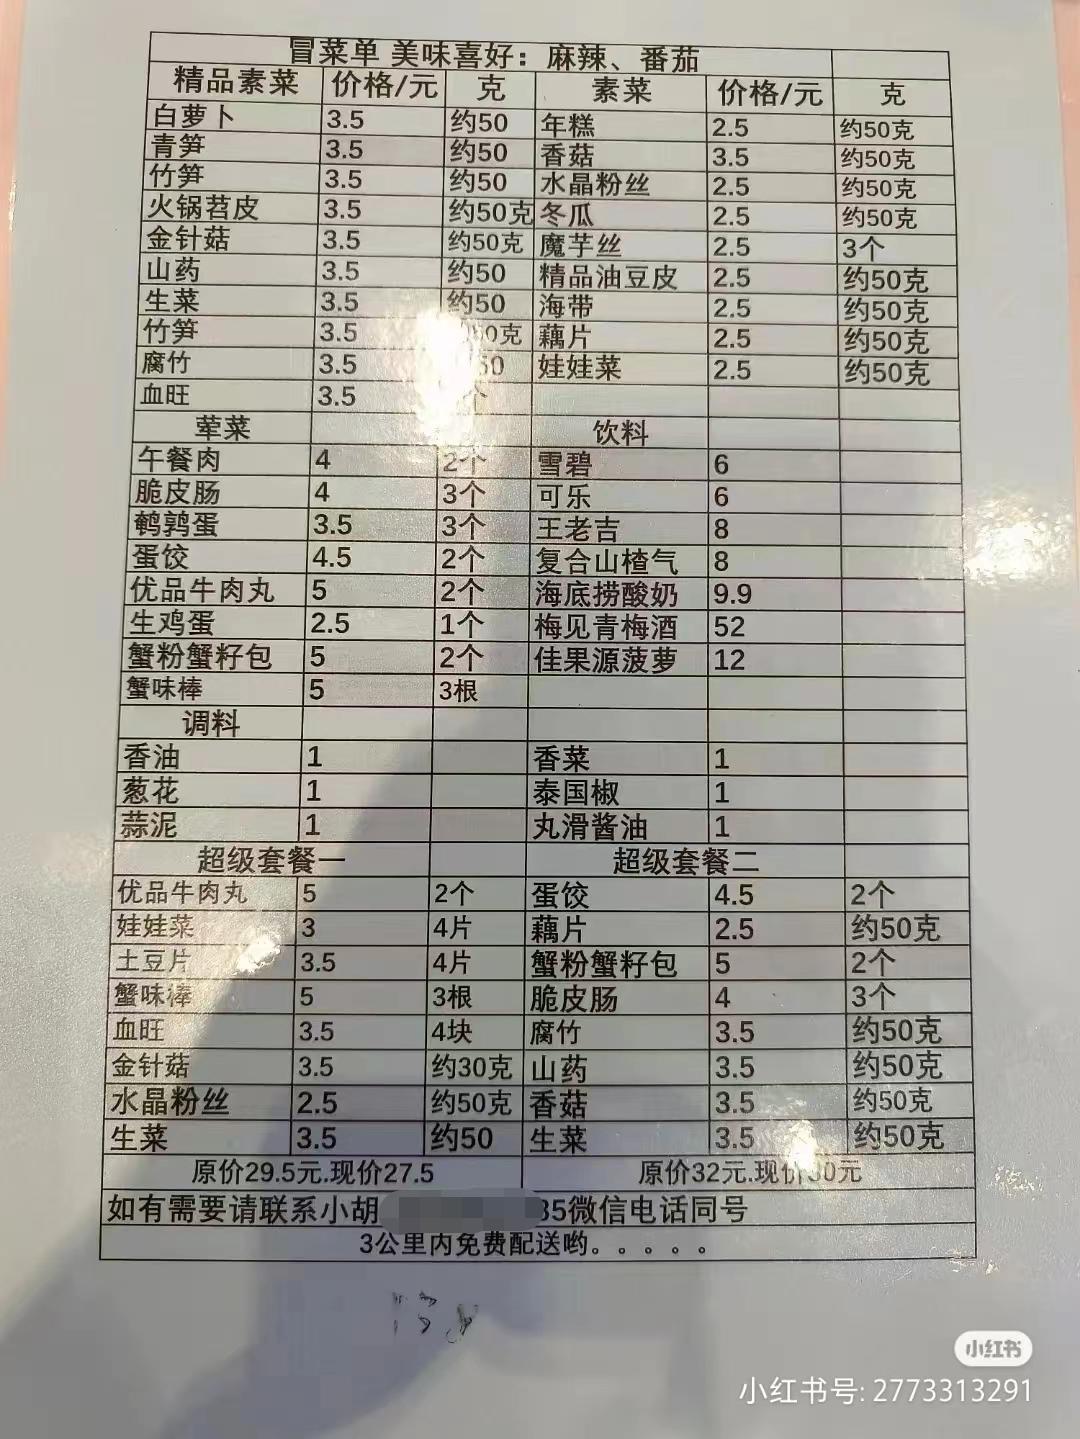 冒菜单 美味喜好：麻辣、番茄
精品素菜 价格/元 克 素菜 价格/元 克
白萝卜 3.5 约50 年糕 2.5 约50克
青笋 3.5 约50 香菇 3.5 约50克
竹笋 3.5 约50 水晶粉丝 2.5 约50克
火锅苕皮 3.5 约50克 冬瓜 2.5 约50克
金针菇 3.5 约50克 魔芋丝 2.5 3个
山药 3.5 约50 精品油豆皮 2.5 约50克
生菜 3.5 约50 海带 2.5 约50克
竹笋 3.5 0克 藕片 2.5 约50克
腐竹 3.5 50 娃娃菜 2.5 约50克
血旺 3.5 个
荤菜 饮料
午餐肉 4 2个 雪碧 6
脆皮肠 4 3个 可乐 6
鹌鹑蛋 3.5 3个 王老吉 8
蛋饺 4.5 2个 复合山楂气 8
优品牛肉丸 5 2个 海底捞酸奶 9.9
生鸡蛋 2.5 1个 梅见青梅酒 52
蟹粉蟹籽包 5 2个 佳果源菠萝 12
蟹味棒 5 3根
调料
香油 1 香菜 1
葱花 1 泰国椒 1
蒜泥 1 丸滑酱油 1
超级套餐一 超级套餐二
优品牛肉丸 5 2个 蛋饺 4.5 2个
娃娃菜 3 4片 藕片 2.5 约50克
土豆片 3.5 4片 蟹粉蟹籽包 5 2个
蟹味棒 5 3根 脆皮肠 4 3个
血旺 3.5 4块 腐竹 3.5 约50克
金针菇 3.5 约30克 山药 3.5 约50克
水晶粉丝 2.5 约50克 香菇 3.5 约50克
生菜 3.5 约50 生菜 3.5 约50克
原价29.5元.现价27.5 原价32元.现价30元
如有需要请联系小胡 35微信电话同号
3公里内免费配送哟。。。。。
小红书
小红书号: 2773313291